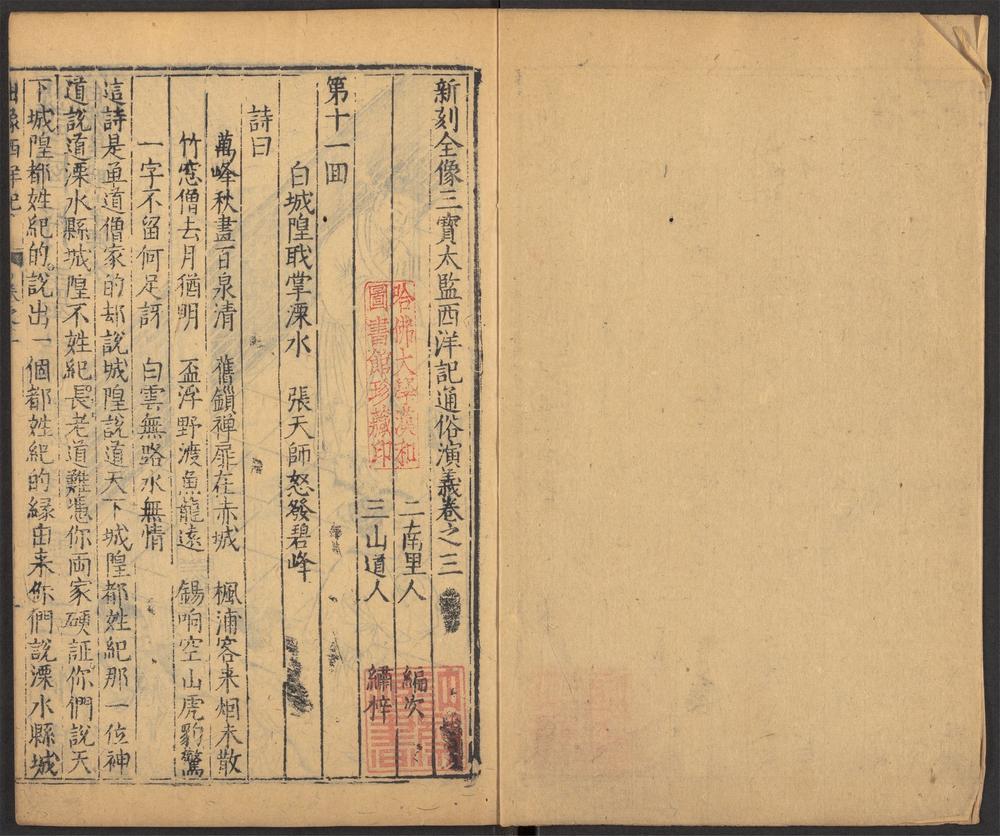 新刻全像三寶太監西洋記通俗演義卷之三
二南里人　編次
三山道人　繡梓
哈佛大學漢和
圖書館珍藏印
第十一回
白城隍戝掌溧水　張天師怒發碧峰
詩曰
萬峰秋盡百泉清　舊鎖禅扉在赤城　楓浦客来烟未散
竹窓僧去月猶明　盃浮野渡魚龍遠　錫响空山虎豹驚
一字不留何足訝　白雲無路水無情
這詩是单道僧家的却說城隍說道天下城隍都姓紀那一位神
道說道溧水縣城隍不姓紀長老道難憑你両家硬証你們說天
下城隍都姓紀的說出一個都姓紀的縁由来你們說溧水縣城